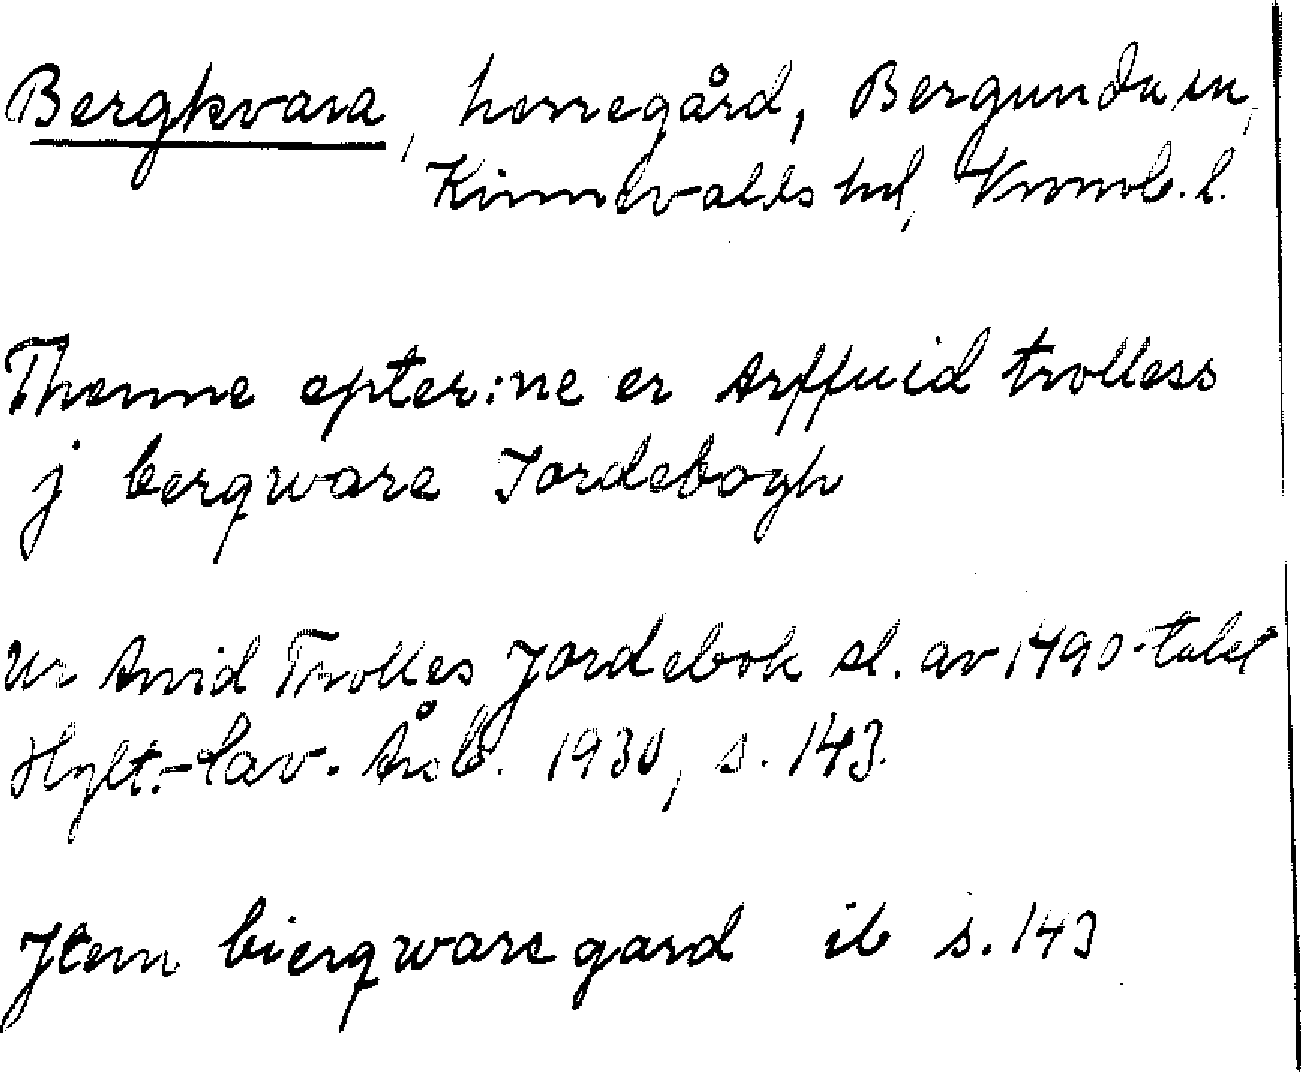 Bergkvara, herregård, Bergunda sn,
Kinnevalds hd, Kronob. l.
Thenne epter:ne er Arffuid trolless
j bergware Jordebogh
Ur Arvid Trolles Jordebok sl. av 1490-talet
Hylt.-Cav. Årsb. 1930, s. 143.
Jtem biergware gard ib s. 143